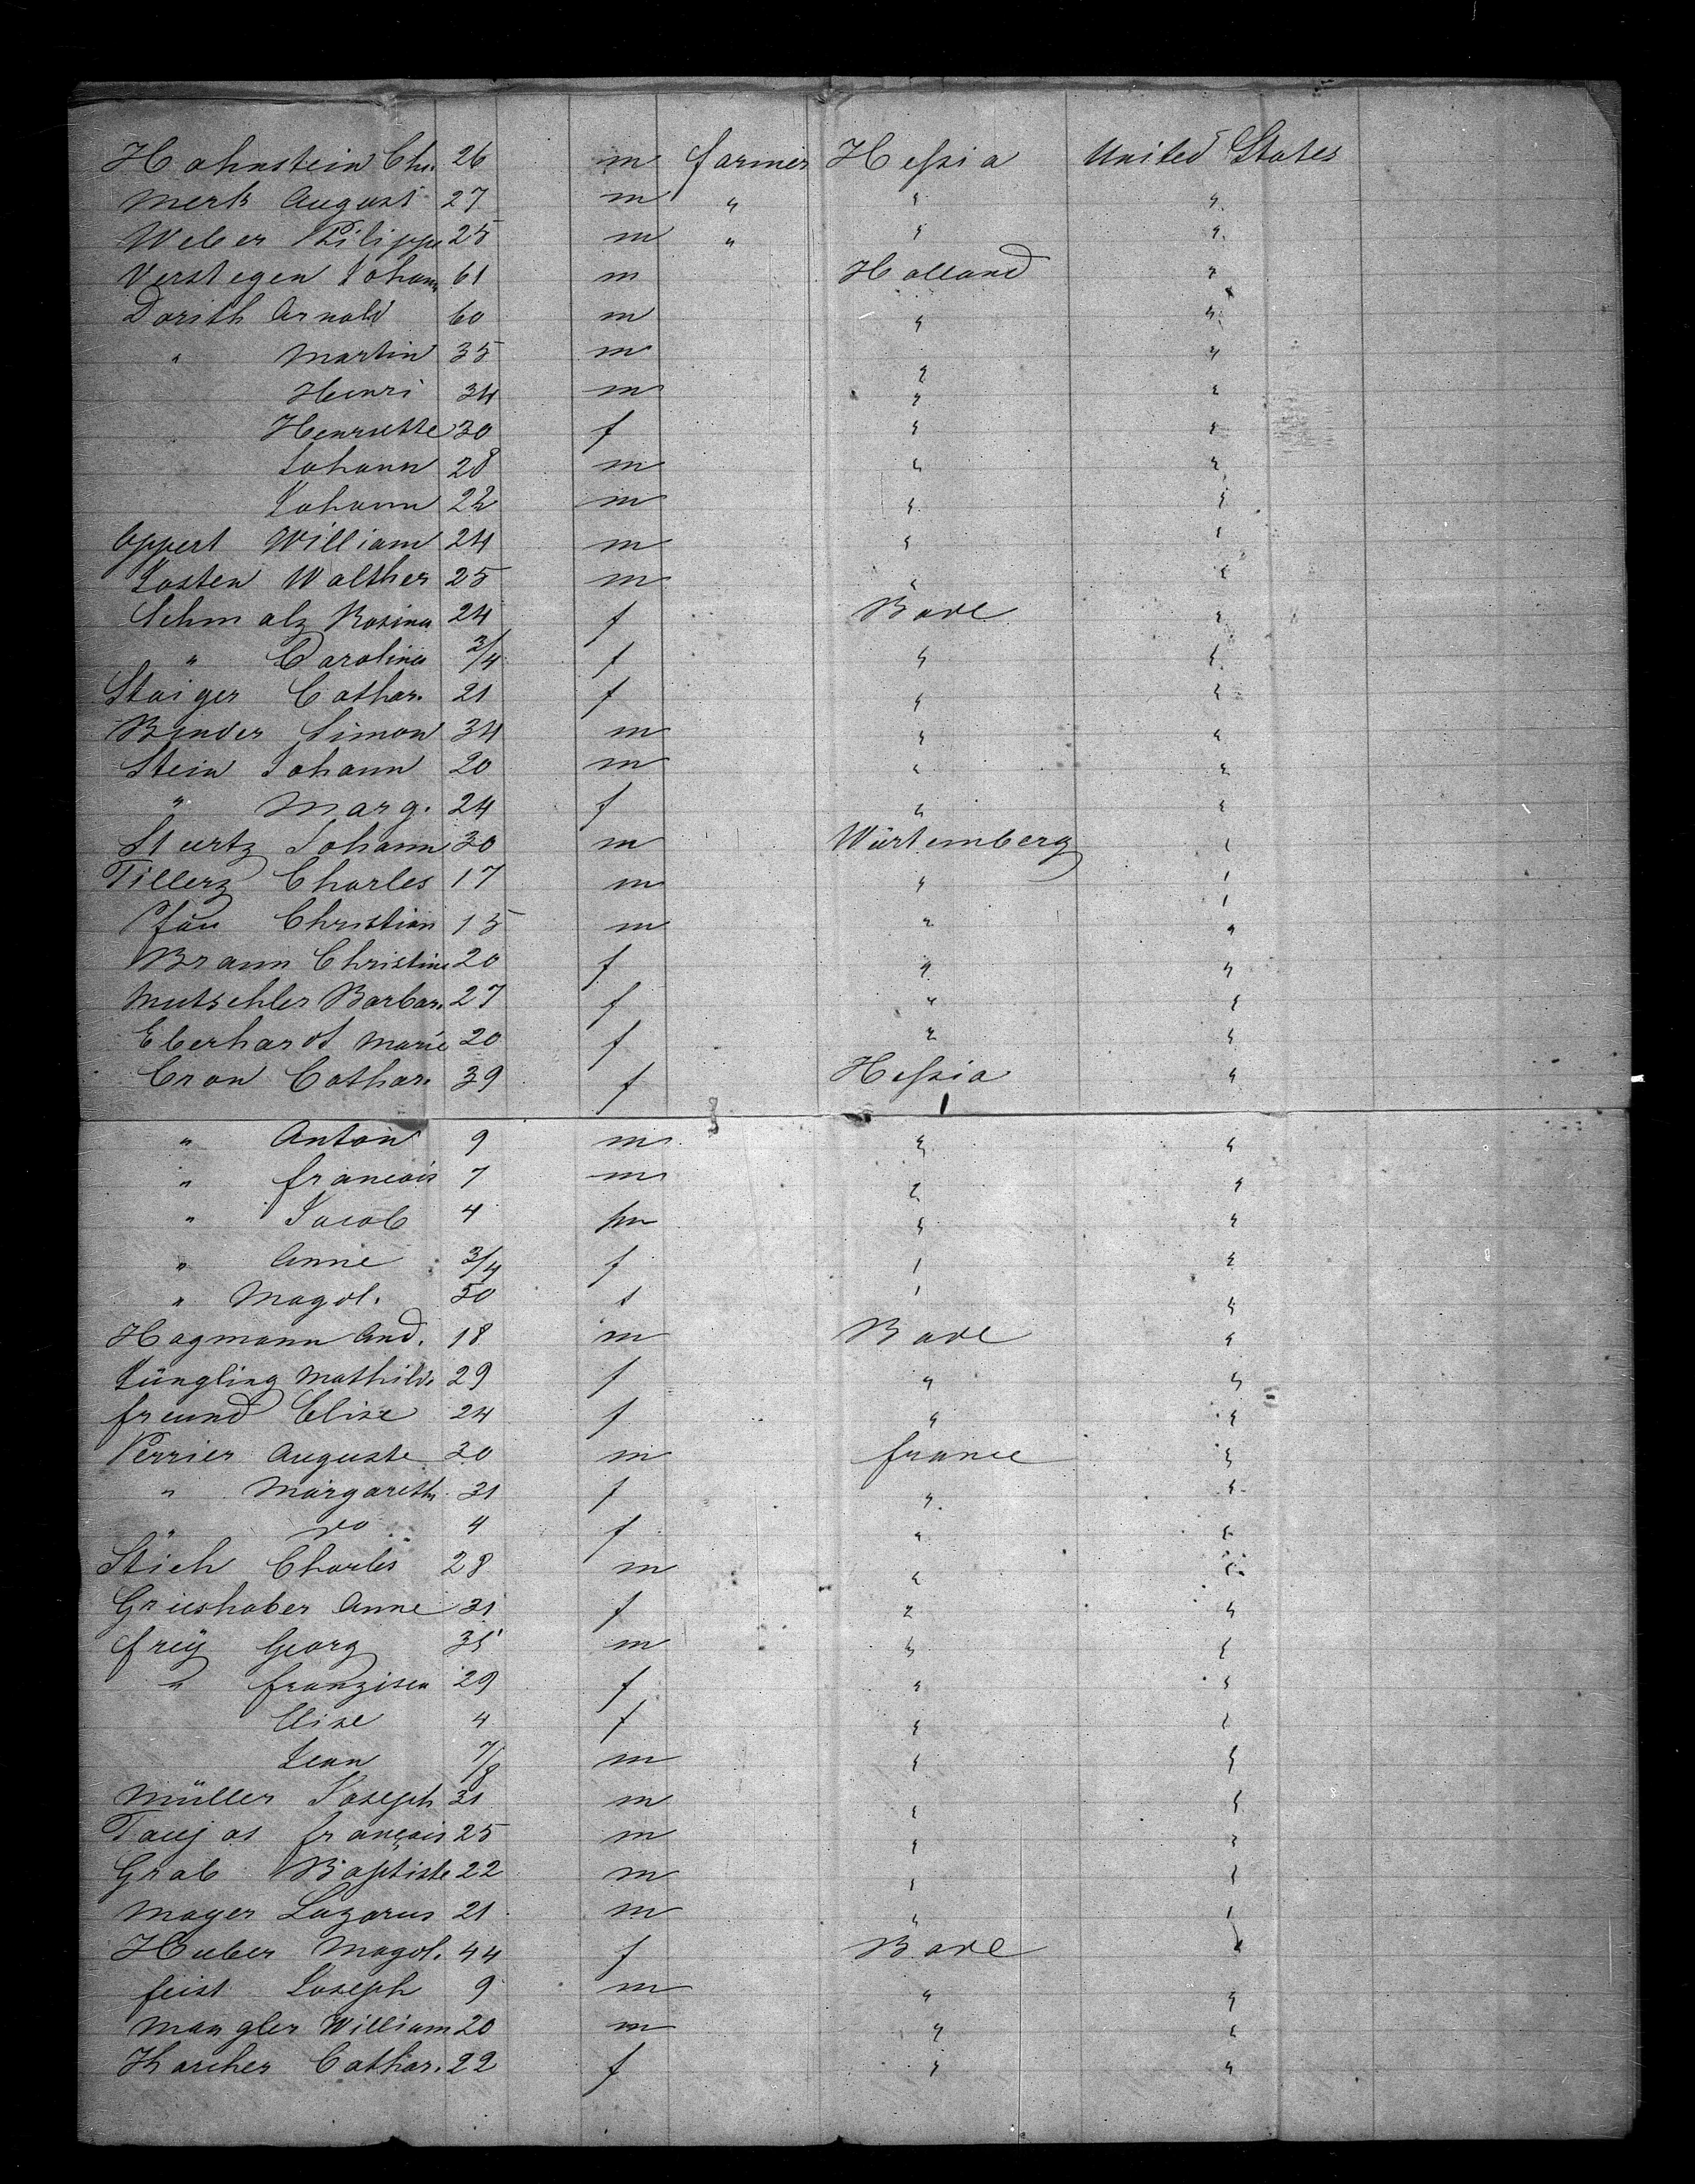 Hohnstein Chr. 26 m farmer Hessia United States
Merk August 27 m " " "
Weber Philippe 25 m " " "
Verstegen Johann 61 m Holland "
Dorith Arnold 60 m " "
" Martin 35 m " "
Henri 34 m " "
Henriette 30 f " "
Johann 28 m " "
Johann 22 m " "
Oppert William 24 m " "
Josten Walther 25 m " "
Schmalz Rosina 24 f Bade "
" Carolina 3/4 f " "
Staiger Cathar. 21 f " "
Binder Simon 34 m " "
Stein Johann 20 m " "
" Marg. 24 f " "
Sturtz Johann 30 m Würtemberg "
Tillerz Charles 17 m " "
Pfau Christian 15 m " "
Braun Christine 20 f " "
Mutschler Barbar. 27 f " "
Eberhardt Marie 20 f " "
Cron Cathar. 39 f Hessia "
" Anton 9 m " "
" francois 7 m " "
" Jacob 4 m " "
" Anne 3/4 f " "
" Magd. 50 f " "
Hagmann And. 18 m Bade "
Jüngling Mathilde 29 f " "
freund Elise 24 f " "
Perrier Auguste 30 m france "
" Margareth. 31 f " "
" do 4 f " "
Stich Charles 28 m " "
Grieshaber Anne 31 f " "
frey Georg 35 m " "
" franzisca 29 f " "
Elise 4 f " "
Jean 7/8 m " "
Müller Joseph 31 m " "
Taujos françois 25 m " "
Grab Baptiste 22 m " "
Mayer Lazarus 21 m " "
Huber Magd. 44 f Bade "
feist Joseph 9 m " "
Mangler William 20 m " "
Karcher Cathar. 22 f " "